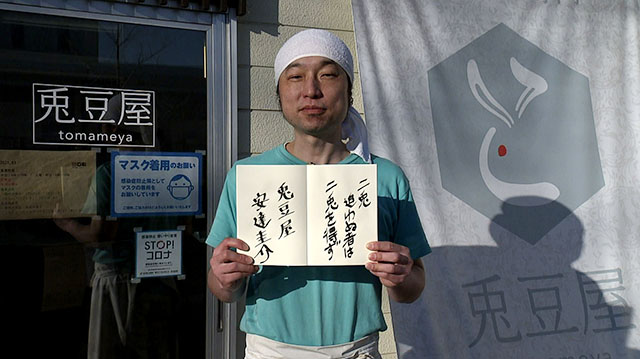 兎豆屋
tomameya
マスク着用のお願い
感染症防止策として
マスクの着用を
お願いしています
STOP!
コロナ
二兎
追わぬ者は
二兎を得ず
兎豆屋
安達圭介
兎豆屋